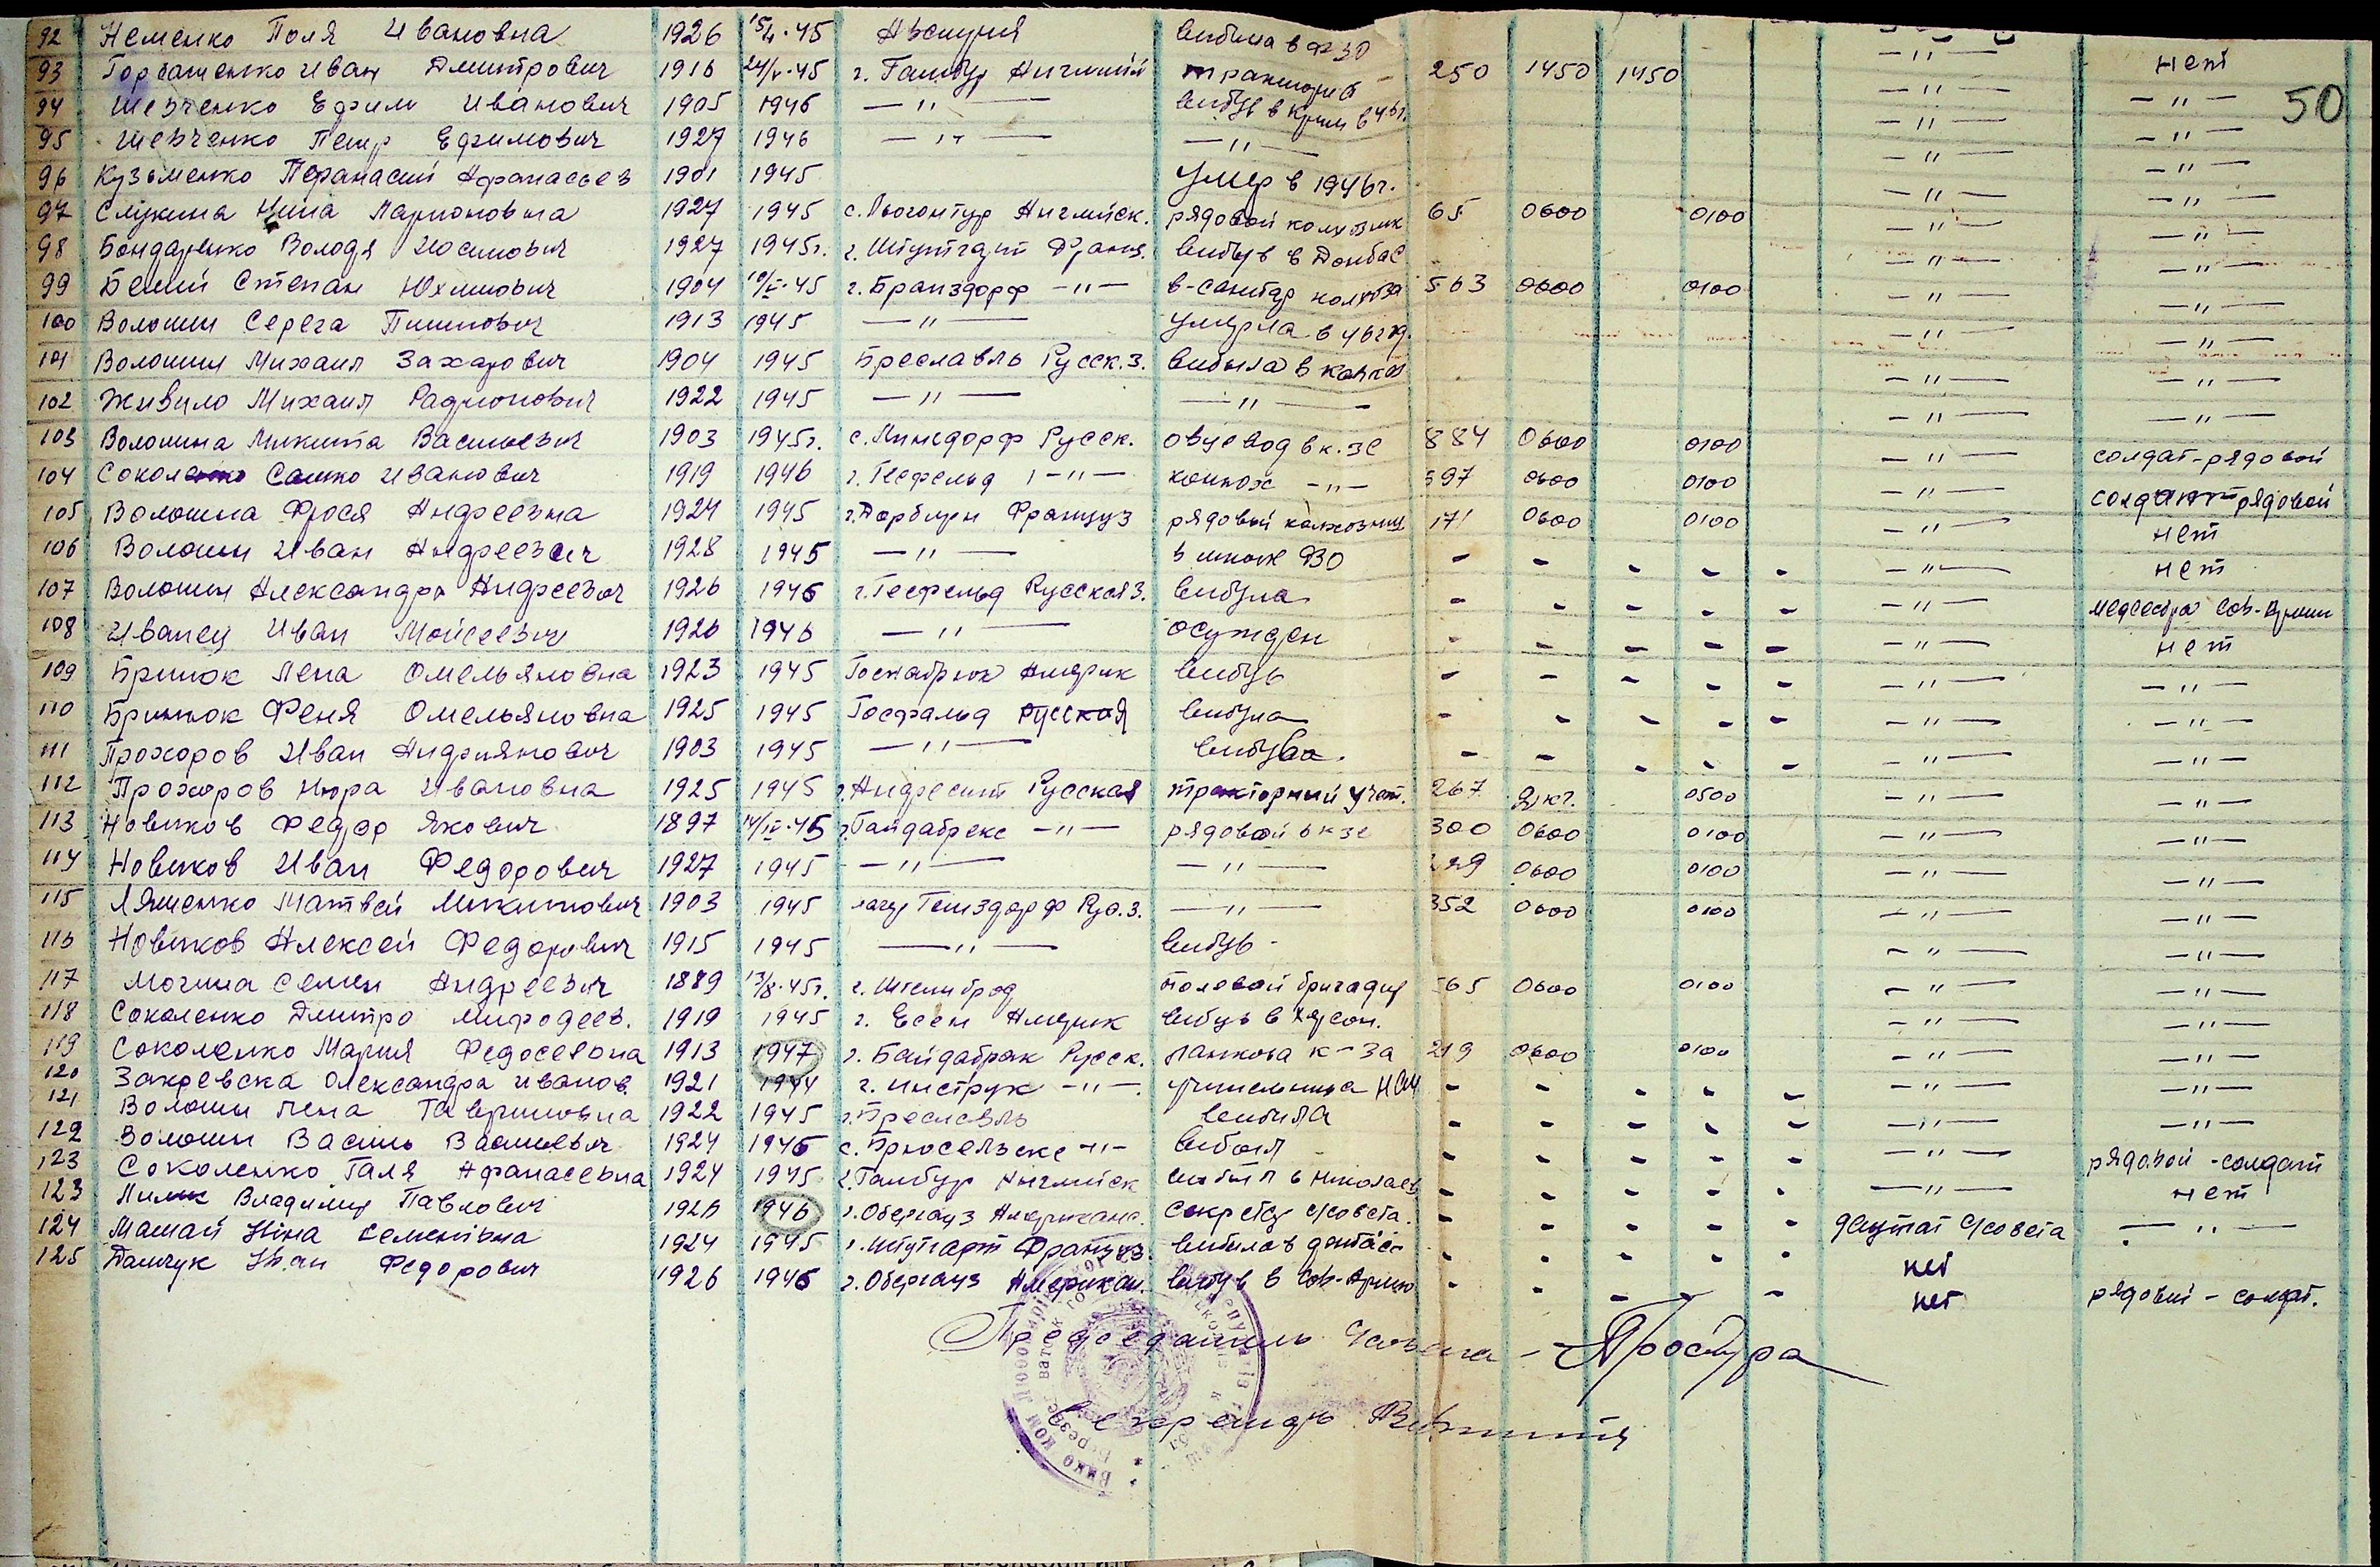 50
92 Неменко Поля Ивановна 1926 15/V-45 Австрия выбыла в ФЗО —"—
93 Горбатенко Иван Дмитрович 1916 24/V-45 г. Гамбур Английй тракторист 250 1450 1450 —"— нет
94 Шевченко Ефим Иванович 1905 1946 —"— вибув в Крим в 46г. —"— —"—
95 Шевченко Петр Ефимович 1927 1946 —"— —"— —"— —"—
96 Кузьменко Панасий Афанасьев 1901 1945 умер в 1946г. —"— —"—
97 Нина Ларионовна 1927 1945 Английск. рядовой колхозник 65 0600 0100 —"— —"—
98 Бондаренко Володя Юсимович 1927 1945г. г. Штутгарт Франц. вибув в Донбас —"— —"—
99 Белий Степан Юхимович 1904 10/V-45 г. Бранздорф —"— в-санитар колхоза 563 0600 0100 —"— —"—
100 Волошин Серега Пимнович 1913 1945 —"— умерла в 46году —"— —"—
101 Волошин Михаил Захарович 1904 1945 Бреславль Русск.з. выбыла в —"— —"—
102 Живило Михаил Радионович 1922 1945 —"— —"— —"— —"—
103 Волошина Микита Васильевич 1903 1945г. с. Линсдорф Русск. овцевод в к-зе 884 0600 0100 —"— —"—
104 Соколенко Сашко Иванович 1919 1946 г. Гесфельд —"— конюх —"— 597 0600 0100 —"— солдат-рядовой
105 Волошина Фрося Андреевна 1924 1945 г. Французз рядовый колхозниц 171 0600 0100 —"— солдант рядовой
106 Волошин Иван Андреевич 1928 1945 —"— в школе ФЗО - - - - - —"— нет
107 Волошин Александра Андреевич 1926 1945 г. Гесфельд Русская З. вибула - - - - - —"— нет
108 Иванец Иван Мойсеевич 1926 1946 —"— осужден - - - - - —"— медсестра Сов-Армии
109 Бринюк Лена Омельяновна 1923 1945 Госнабрюк Америк вибув - - - - - —"— нет
110 Бринюк Феня Омельяновна 1925 1945 Госфальд Русская вибула - - - - - —"— —"—
111 Прохоров Иван Андриянович 1903 1945 —"— вибува. - - - - - —"— —"—
112 Прохоров Нюра Ивановна 1925 1945 г. Русская тракторный учет. 267 2 кг. 0500 —"— —"—
113 Новиков Федор Якович 1897 14/IV-45 г. Гайдабрекс —"— рядовой в к-зе 300 0600 0100 —"— —"—
114 Новиков Иван Федорович 1927 1945 —"— —"— 229 0600 0100 —"— —"—
115 Ляшенко Матвей Микитович 1903 1945 лагер Генздорф Рус.З. —"— 352 0600 0100 —"— —"—
116 Новиков Алексей Федорович 1915 1945 —"— вибув - —"— —"—
117 Могила Семен Андреевич 1889 13/8-45г. г. Штенброд полевой бригадир 565 0600 0100 —"— —"—
118 Соколенко Дмитро Мифодеев. 1919 1945 г. Есен Америк вибув в Херсон. —"— —"—
119 Соколенко Мария Федосеевна 1913 1947 г. Байдабрак Русск. ланкова к-за 219 0600 0100 —"— —"—
120 Закревска Олександра Иванов. 1921 1944 г. Инструк —"— учительница НСШ - - - - - —"— —"—
121 Волошин Лена Гавриловна 1922 1945 г. Бреславль вибила - - - - - —"— —"—
122 Волошин Василь Васильевич 1924 1945 с. —"— вибыл - - - - - —"— рядовой-солдат
123 Соколенко Галя Афанасевна 1924 1945 г. Гамбур Английск вибыл в Николаев - - - - - —"— нет
123 Лимик Владимир Павлович 1926 1946 г. Обергауз Американс. секретар с/совета. - - - - - депутат с/совета —"—
124 Машай Ніна Семенівна 1924 1945 г. Штутгарт Французз. вибила в донбасс - - - - - нет
125 Данчук Иван Федорович 1926 1946 г. Обергауз Американ. вибув в Сов-Армию - - - - - нет рядовий - солдат.
Председатель с/совета - Простура
Секретарь